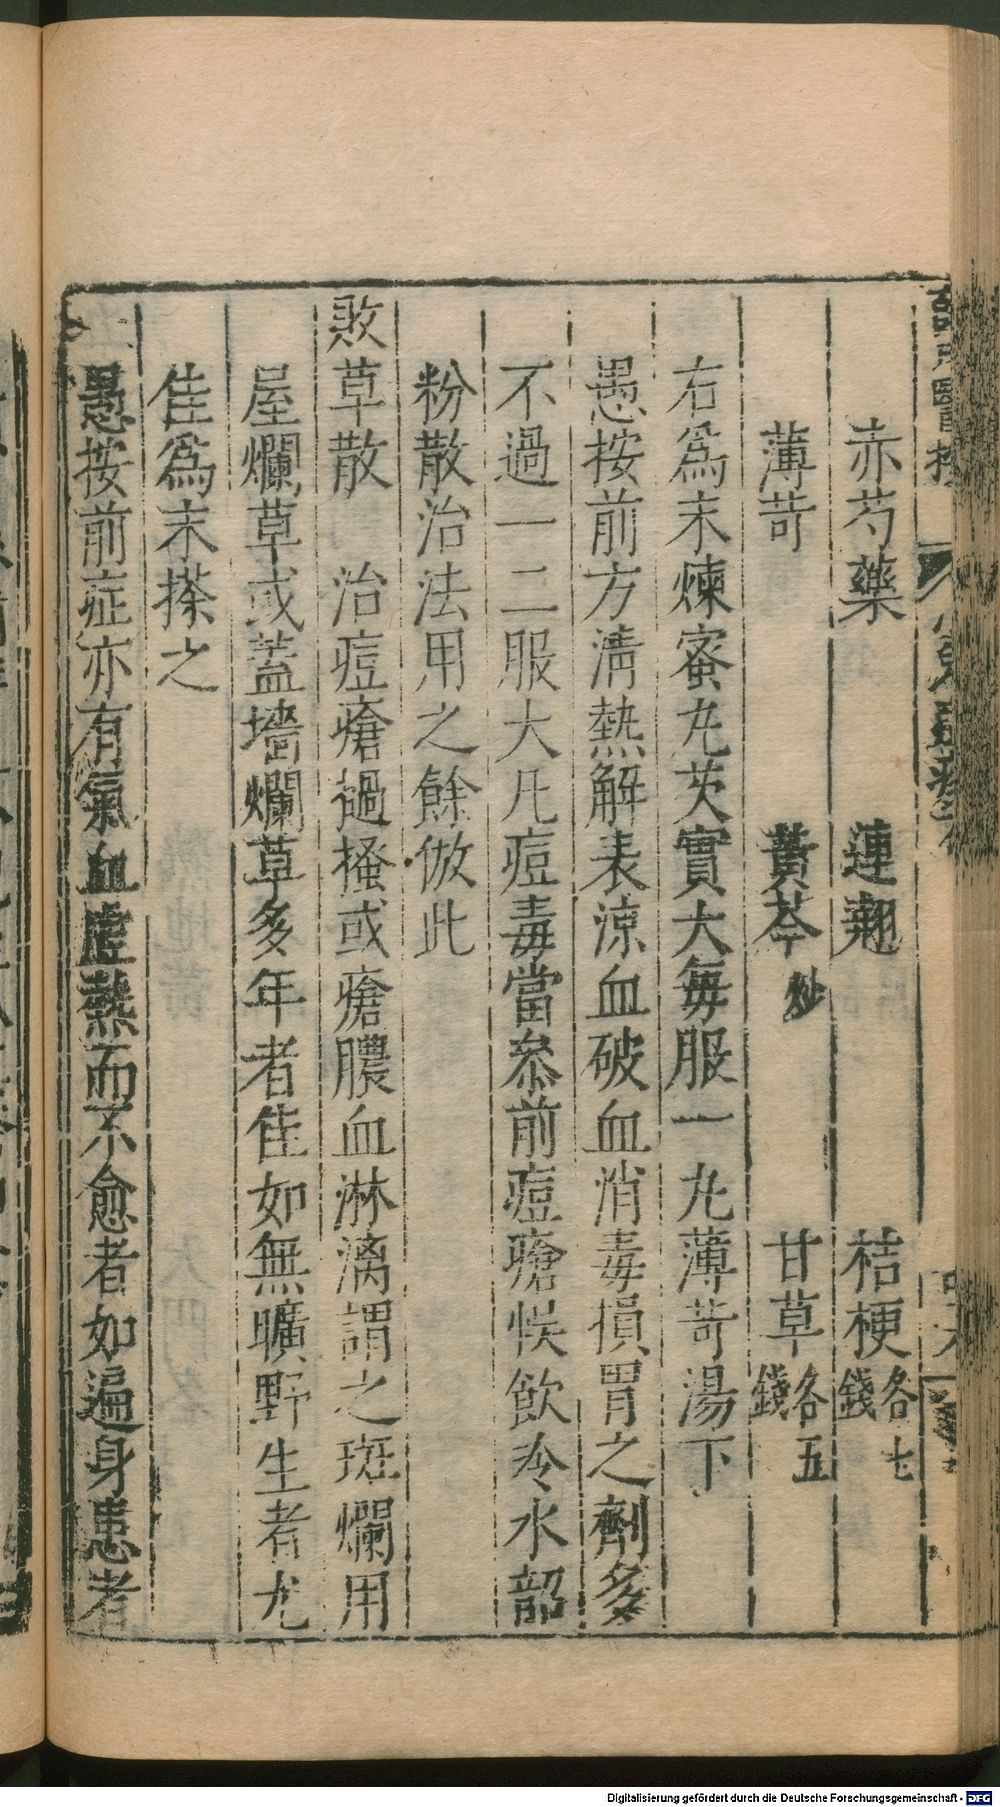 赤芍藥　連翹　桔梗各七錢
薄苛　黃芩炒　甘草各五錢
右爲末煉蜜丸芡實大每服一丸薄苛湯下
愚按前方清熱解表涼血破血消毒損胃之劑多
不過一二服大凡痘毒當叅前痘瘡悞飲冷水韶
粉散治法用之餘倣此
敗草散　治痘瘡搔或瘡膿血淋漓謂之斑爛用
屋爛草或蓋墻爛草多年者佳如無曠野生者尤
佳爲末搽之
愚按前症亦有氣血虛熱而不愈者如遍身患者
Digitalisierung gefördert durch die Deutsche Forschungsgemeinschaft - DFG